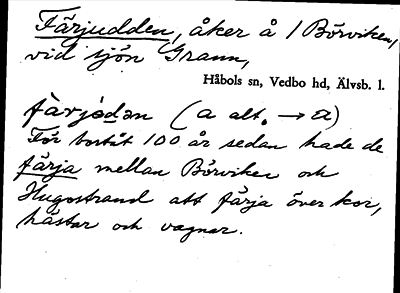 Färjudden, åker å / Börviken,
vid sjön Grann,
Håbols sn, Vedbo hd, Älvsb. l.
färjödən (a alt. → a)
För bortåt 100 år sedan hade de
färja mellan Börviken och
Hugostrand att färja över kor,
hästar och vagnar.